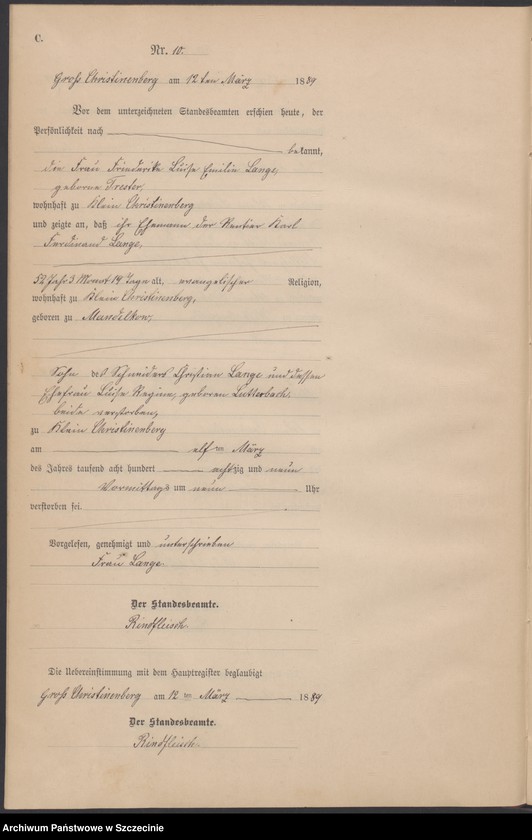 C.
Nr. 10.
Groß Christinenberg am 12ten März 1889
Vor dem unterzeichneten Standesbeamten erschien heute, der
Persönlichkeit nach
bekannt,
die Frau Friederike Luise Emilie Lange,
geborne Trester,
wohnhaft zu Klein Christinenberg
und zeigte an, daß ihr Ehemann der Rentier Karl
Ferdinand Lange,
52 Jahr 3 Monat 14 Tage alt, evangelischer Religion,
wohnhaft zu Klein Christinenberg,
geboren zu Mandelkow,
Sohn des Schneiders Christian Lange und dessen
Ehefrau Luise Regine, geboren Lutterbach,
beide verstorben,
zu Klein Christinenberg
am elften März
des Jahres tausend acht hundert achtzig und neun
Vormittags um neun Uhr
verstorben sei.
Vorgelesen, genehmigt und unterschrieben
Frau Lange.
Der Standesbeamte.
Rindfleisch
Die Uebereinstimmung mit dem Hauptregister beglaubigt
Groß Christinenberg am 12ten März 1889
Der Standesbeamte.
Rindfleisch.
Archiwum Państwowe w Szczecinie